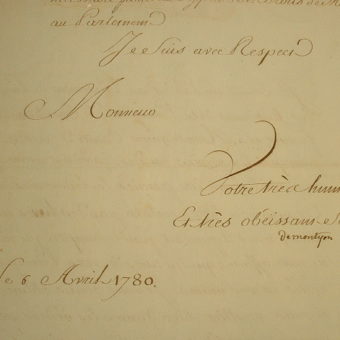 au Parlement
Je Suis avec Respect
Monsieur
Votre très hum
Et très obéissant Se
demontyon
le 6 Avril 1780.